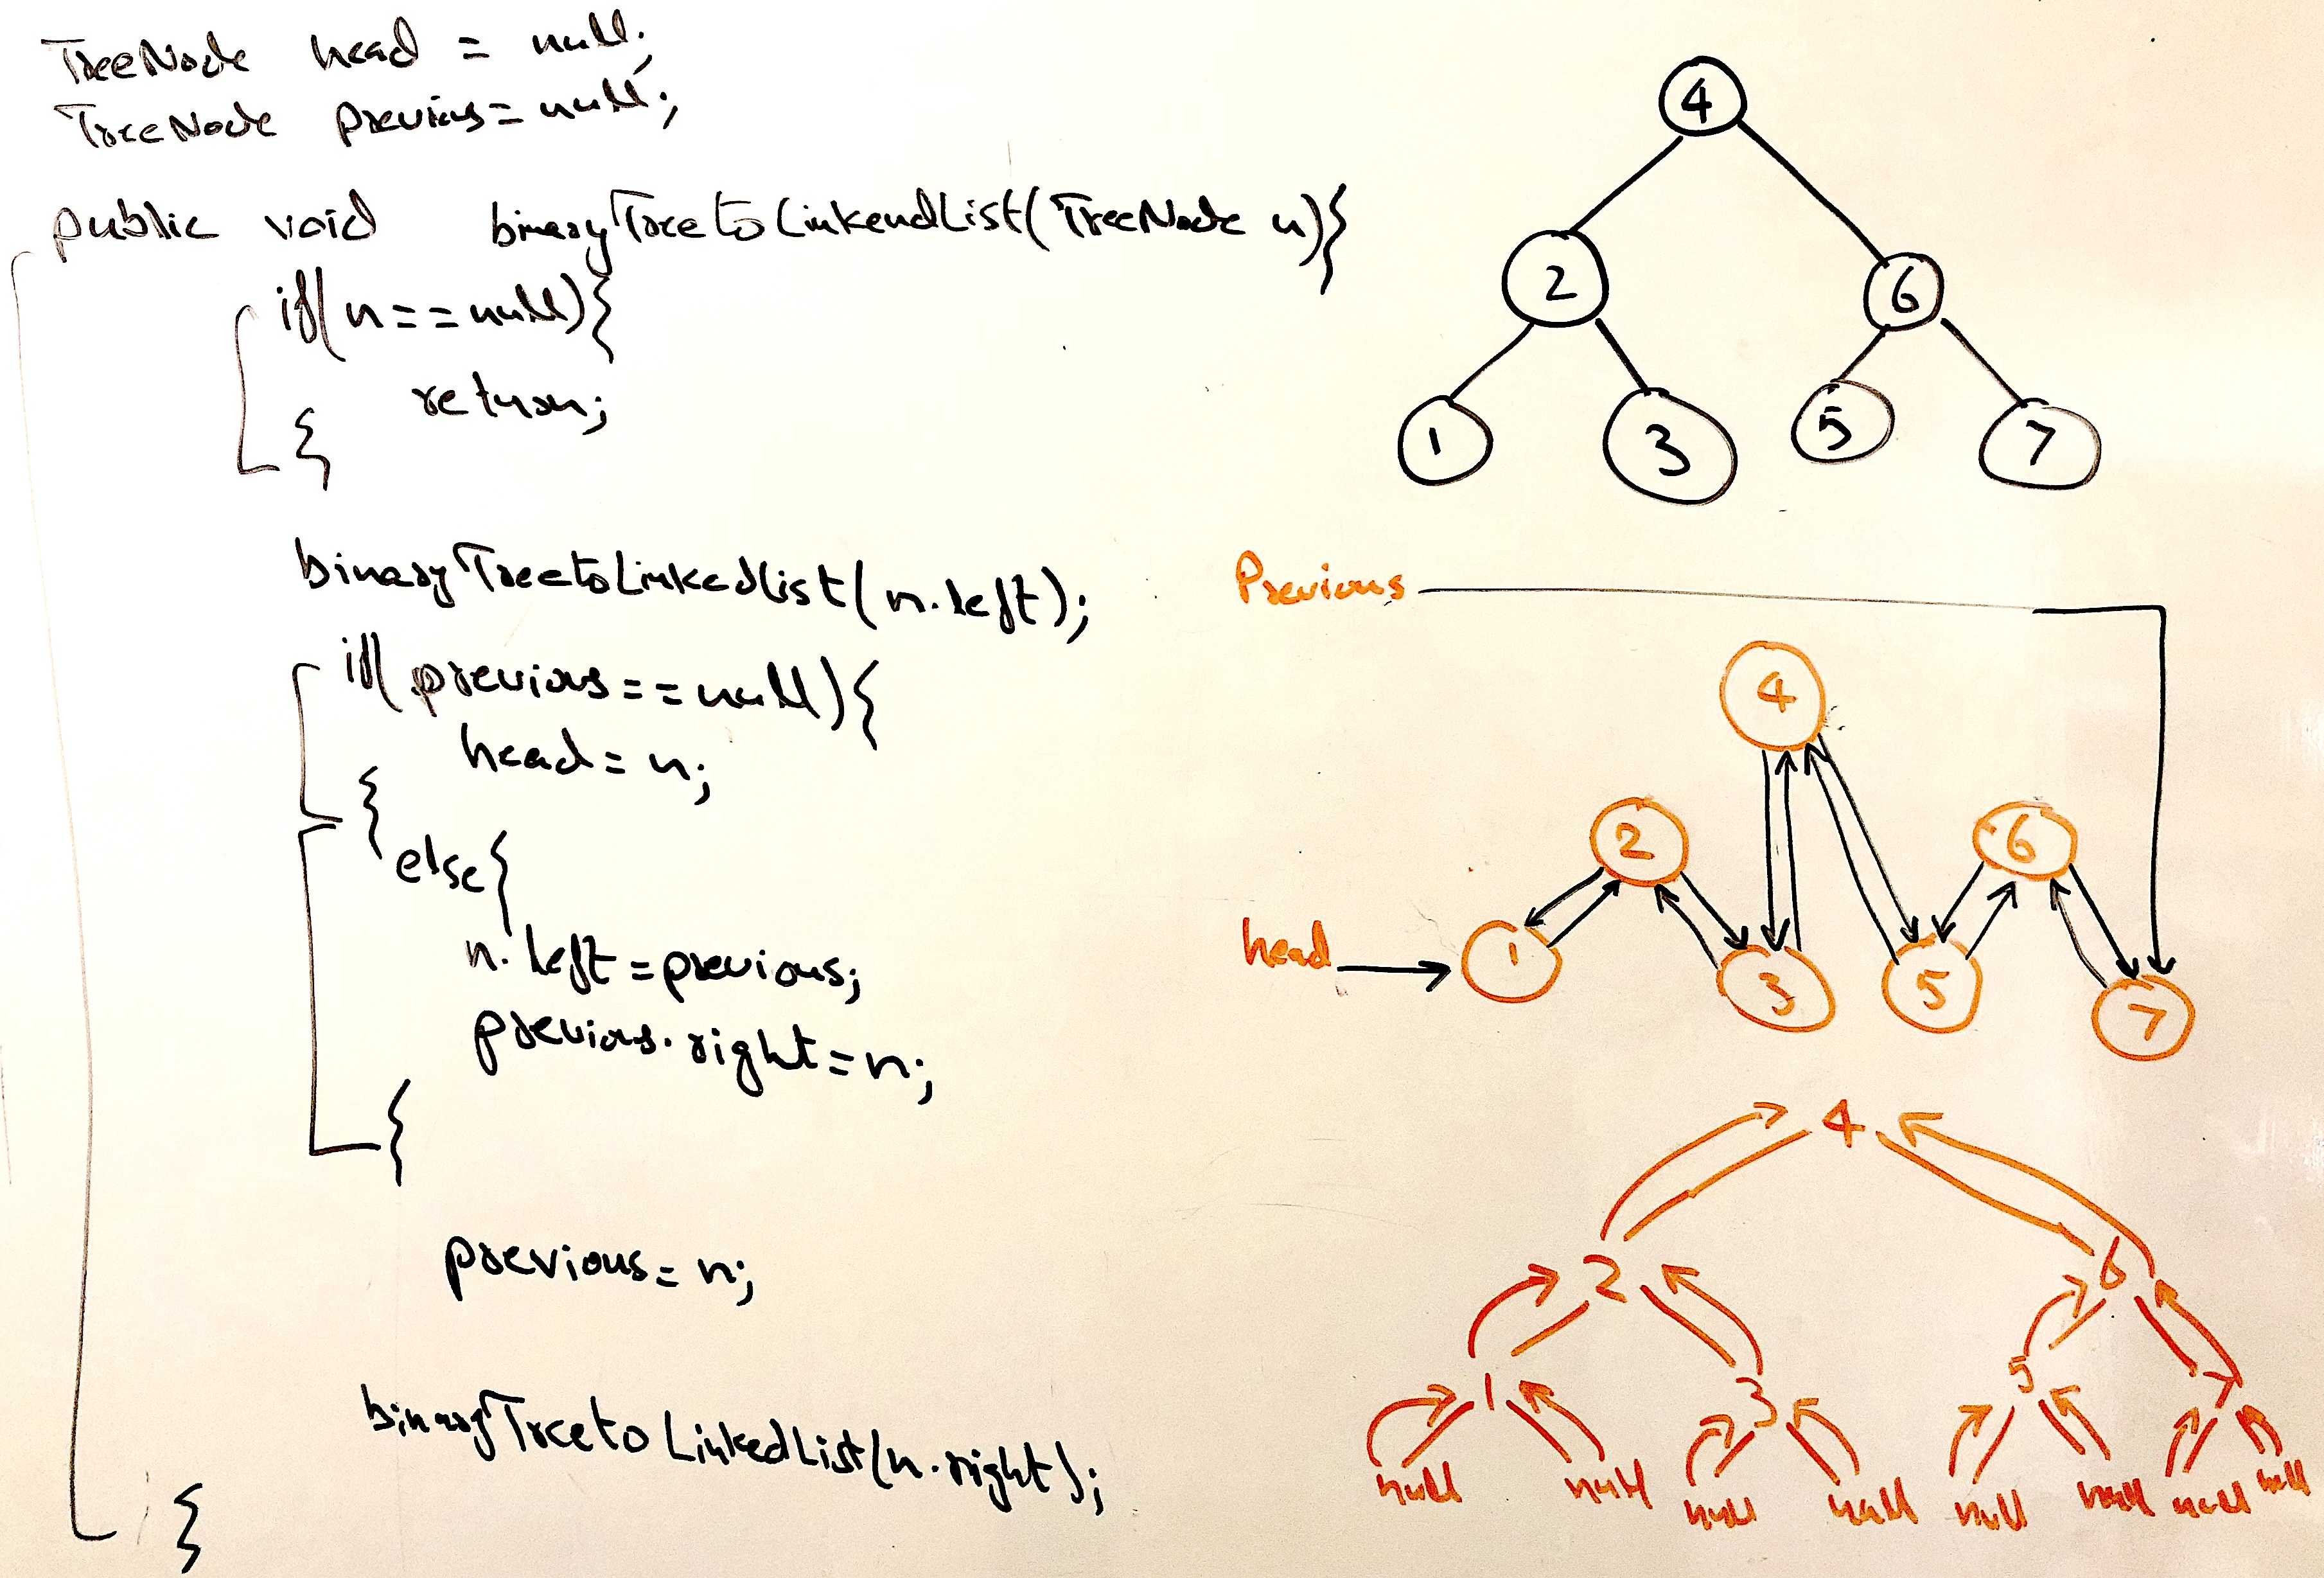 TreeNode head = null;
TreeNode previous = null;
public void binaryTreetoLinkendList(TreeNode n){
if(n==null){
return;
}
binaryTreetoLinkedlist(n.left);
if(previous==null){
head=n;
}
else{
n.left=previous;
previous.right=n;
}
previous=n;
binaryTreetoLinkedList(n.right);
}
4
2 6
1 3 5 7
Previous
4
2 6
head 1 3 5 7
4
2 6
1 3 5 7
null null null null null null null null